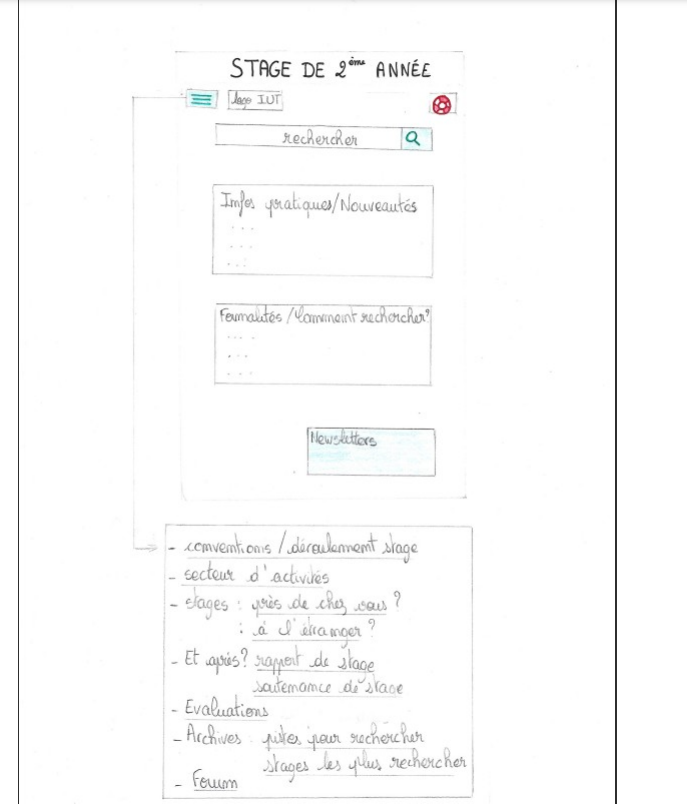 STAGE DE 2ème ANNÉE
logo IUT
rechercher
Infos pratiques/Nouveautés
...
...
...
Formalités / Comment rechercher?
....
...
...
Newsletters
- conventions / déroulement stage
- secteur d'activités
- stages : près de chez vous ?
: à l'étranger ?
- Et après? rapport de stage
soutenance de stage
- Evaluations
- Archives : pistes pour rechercher
stages les plus rechercher
- Forum